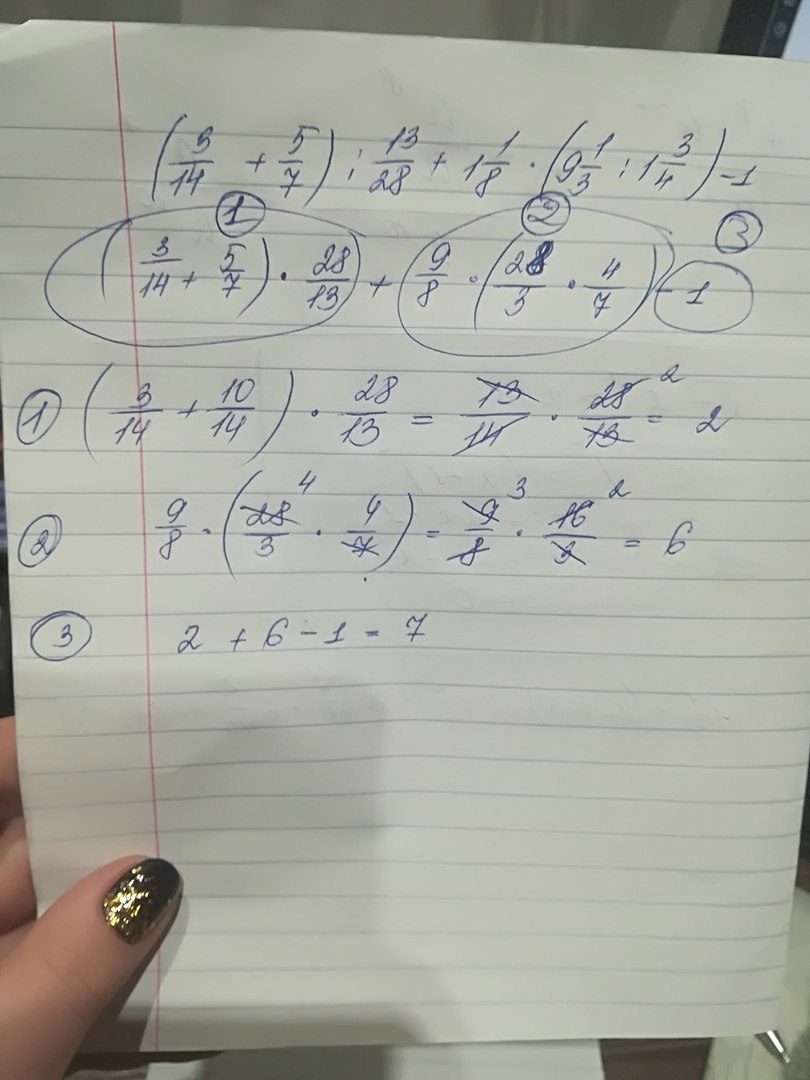 (3/14 + 5/7) : 13/28 + 1 1/8 · (9 1/3 : 1 3/4) - 1
① ② ③
(3/14 + 5/7) · 28/13 + 9/8 · (28/3 · 4/7) - 1
① (3/14 + 10/14) · 28/13 = 13/14 · 28/13 2 = 2
② 9/8 · (28/3 4 · 4/7) = 9/8 3 · 16/3 2 = 6
③ 2 + 6 - 1 = 7